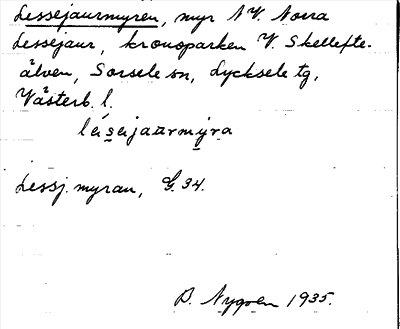 Lessejaurmyren, myr N.V. Norra
Lessejaur, kronoparken V. Skellefte-
älven, Sorsele sn, Lycksele tg,
Västerb. l.
Lessj. myran, G. 34.
D. Nygren 1935.